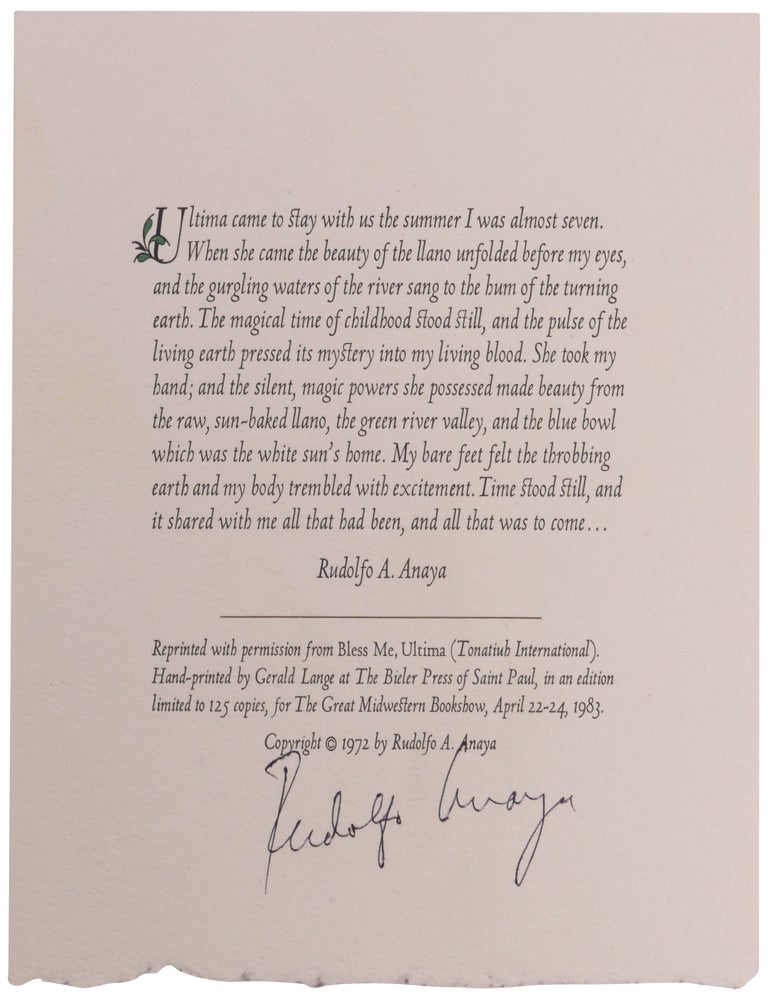 Ultima came to stay with us the summer I was almost seven.
When she came the beauty of the llano unfolded before my eyes,
and the gurgling waters of the river sang to the hum of the turning
earth. The magical time of childhood stood still, and the pulse of the
living earth pressed its mystery into my living blood. She took my
hand; and the silent, magic powers she possessed made beauty from
the raw, sun-baked llano, the green river valley, and the blue bowl
which was the white sun's home. My bare feet felt the throbbing
earth and my body trembled with excitement. Time stood still, and
it shared with me all that had been, and all that was to come...
Rudolfo A. Anaya
Reprinted with permission from Bless Me, Ultima (Tonatiuh International).
Hand-printed by Gerald Lange at The Bieler Press of Saint Paul, in an edition
limited to 125 copies, for The Great Midwestern Bookshow, April 22-24, 1983.
Copyright © 1972 by Rudolfo A. Anaya
Rudolfo Anaya